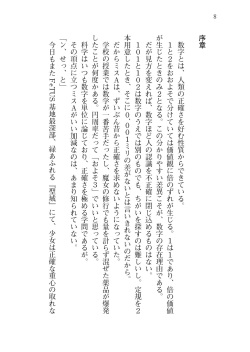 8
序章
数字とは、人類の正確さを好む性質からできている。
1と2をおおよそで分けていては価値観に倍のずれが生じる。1は1であり、倍の価値
が生じたときのみ2となる。この分かりやすい差異こそが、数字の存在理由である。
だが見方を変えれば、数字ほど人の認識を不正確に閉じ込めるものはない。
101と102は数字のうえでは別のものでも、ちがいを探すのは難しいし、定規を2
本用意したとき、そこに0.001ミリの差がないとは言いきれないのだから。
だからミスAは、ずいぶん昔から正確さを求めないようになっていた。
学校の授業では数学が一番苦手だったし、魔女の修行でも量を計らず混ぜた薬品が爆発
したことが何度かある。円周率だって「およそ3」でいいと思っている。
科学はいつも数字を単位に論じており、正確さを極める学問であるが、
その頂点に立つミスAがいい加減なのは、あまり知られていない。
「ン、せっ、と」
今日もまたFACTIS基地最深部、緑あふれる『庭城』にて、少女は正確な重心の取れな